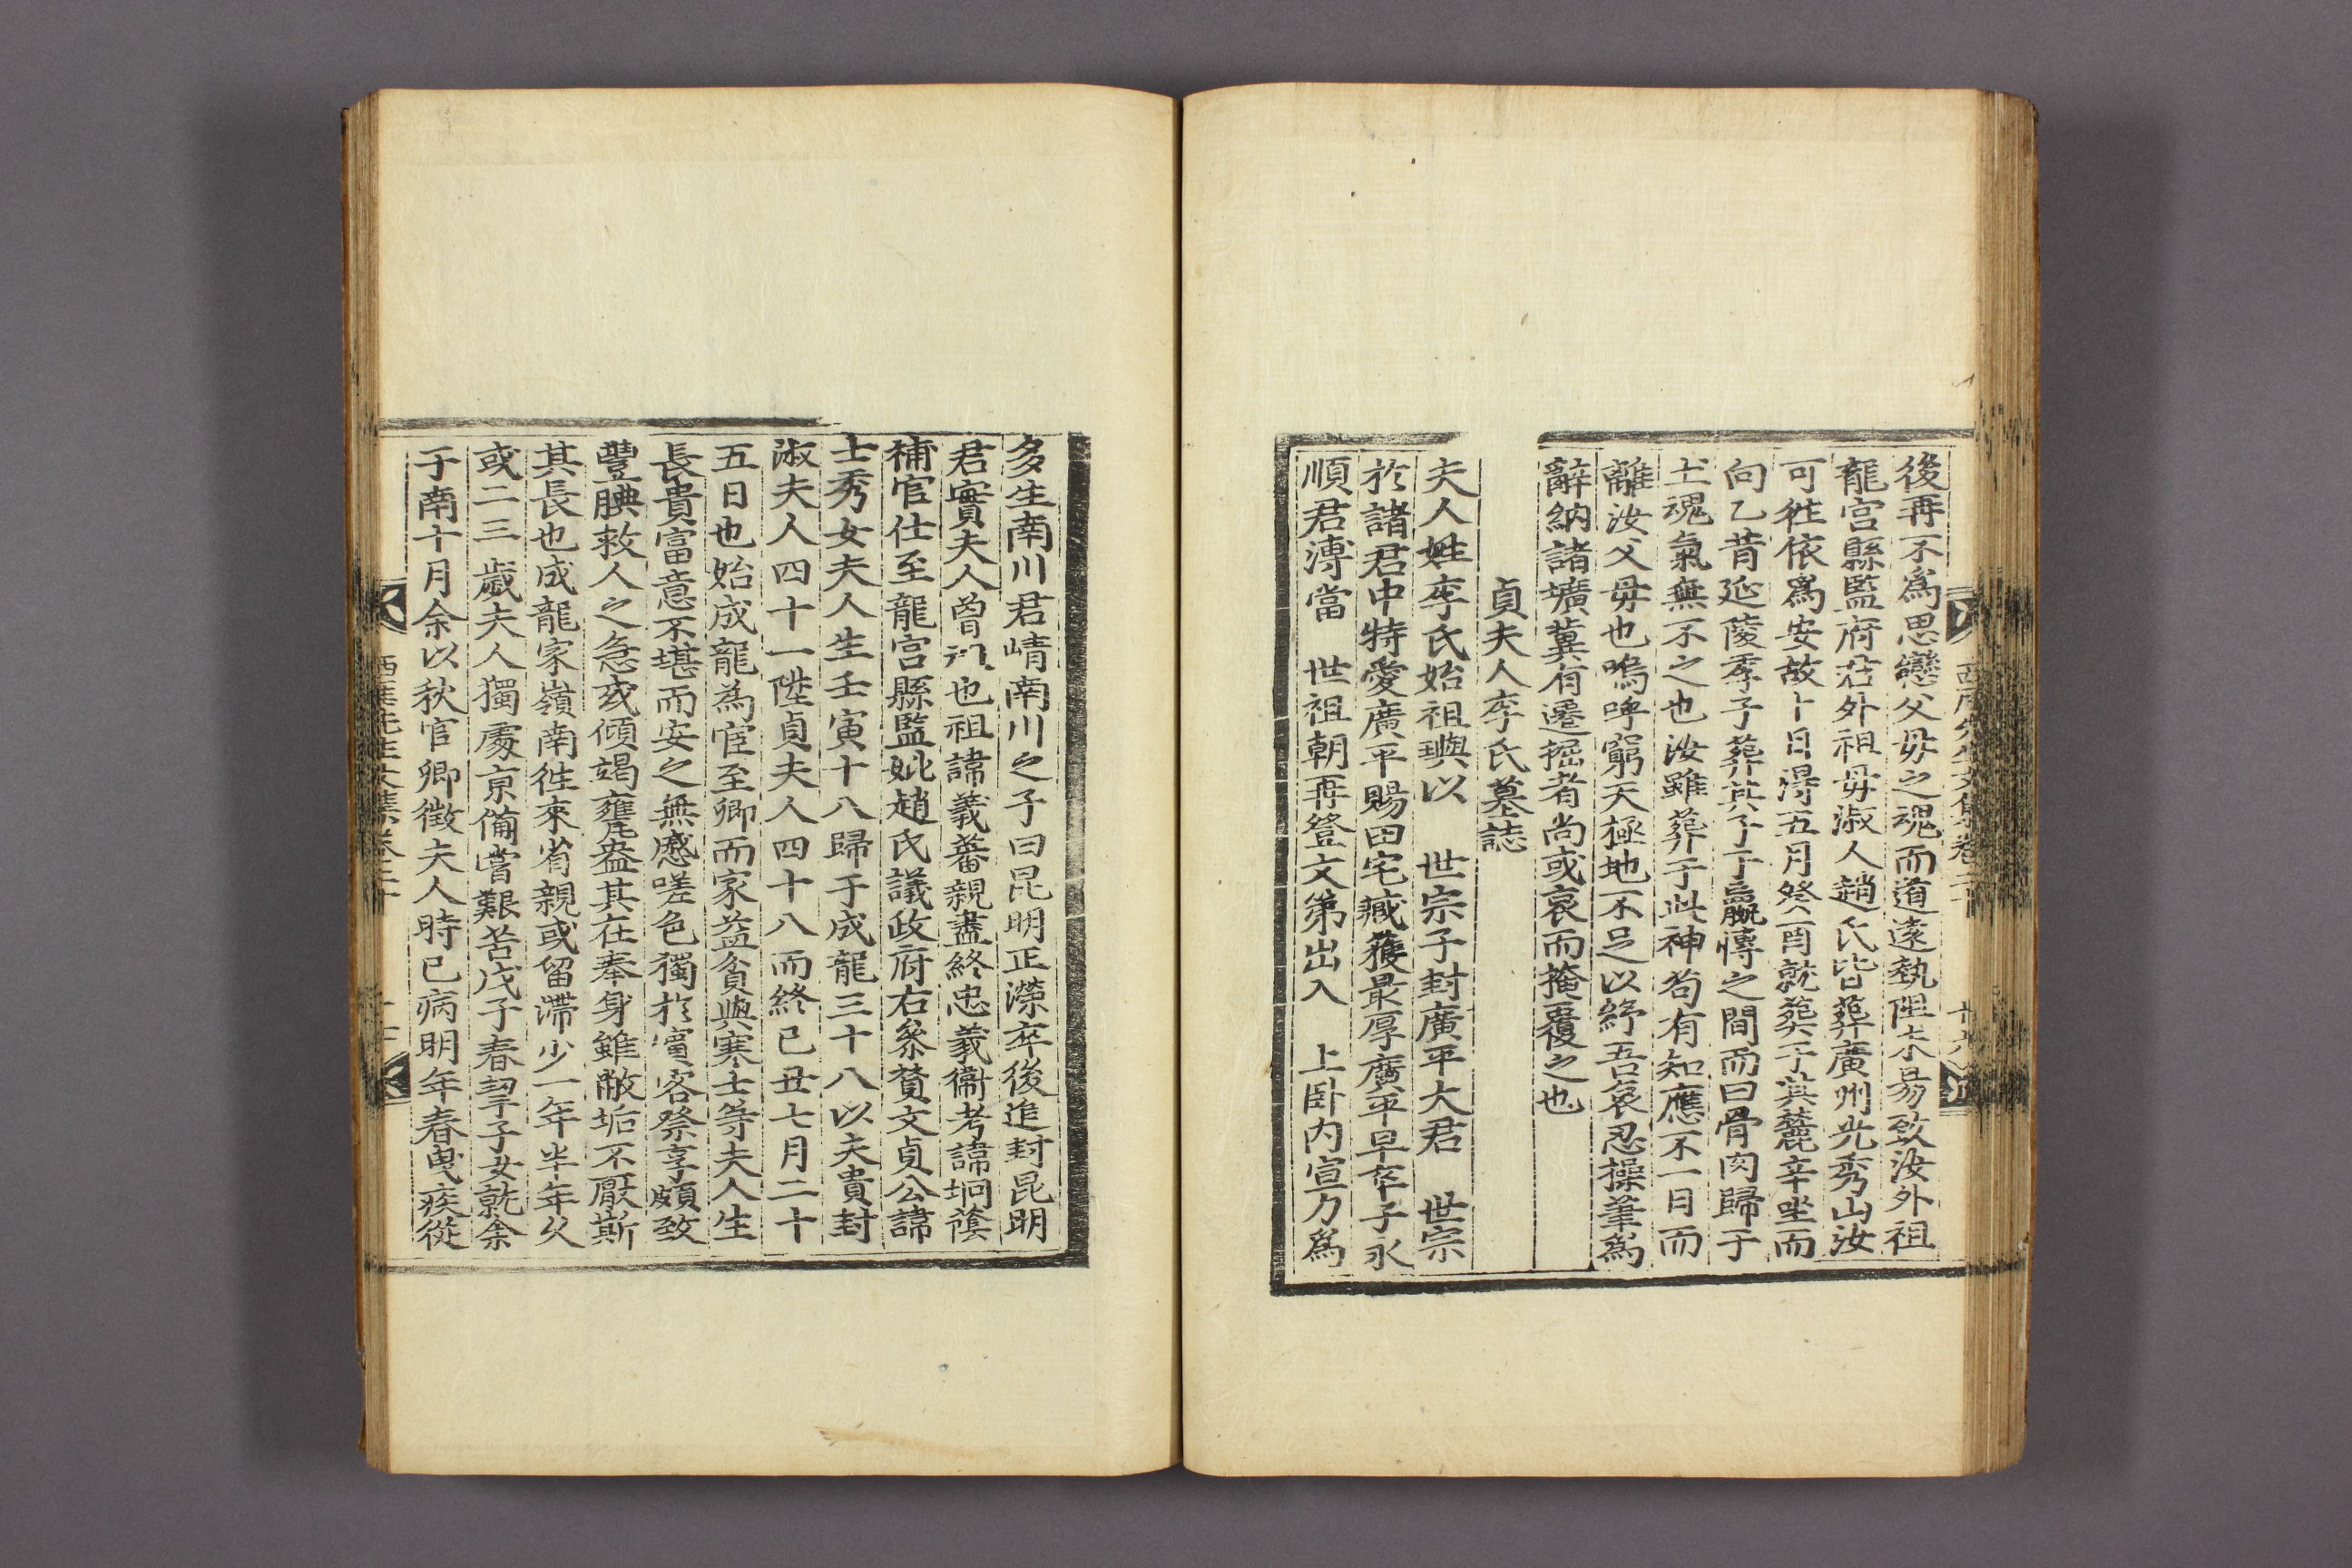 後再不爲思戀父毋之魂而道遠勢阻未易致汝外祖
龍宮縣監府君外祖毋淑人趙氏皆葬廣州光秀山汝
可徃依爲安故卜日得五月癸酉就葬于其麓辛坐而
向乙昔延陵季子葬其子于嬴愽之間而曰骨肉歸于
土魂氣無不之也汝雖葬于此神苟有知應不一日而
離汝父毋也嗚呼窮天極地不足以紓吾哀忍操筆爲
辭納諸壙冀有遷掘者尚或哀而掩覆之也
貞夫人李氏墓誌
夫人姓李氏始祖璵以 世宗子封廣平大君 世宗
於諸君中特愛廣平賜田宅臧獲最厚廣平早卒子永
順君溥當 世祖朝再登文第出入 上卧内宣力爲
多生南川君崝南川之子曰昆明正濴卒後追封昆明
君實夫人曽祖也祖諱義蕃親盡終忠義衛考諱坰蔭
補官仕至龍宮縣監妣趙氏議政府右叅賛文貞公諱
士秀女夫人生壬寅十八歸于成龍三十八以夫貴封
淑夫人四十一陞貞夫人四十八而終己丑七月二十
五日也始成龍為宦至卿而家益貧與寒士等夫人生
長貴富意不堪而安之無慼嗟色獨於賓客祭享頗致
豐腆救人之急或傾竭甕盎其在奉身雖敝垢不厭斯
其長也成龍家嶺南徃來省親或留滯少一年半年久
或二三歲夫人獨處京備嘗艱苦戊子春挈子女就余
于南十月余以秋官卿徵夫人時已病明年春曳疾從
西厓先生文集卷二十